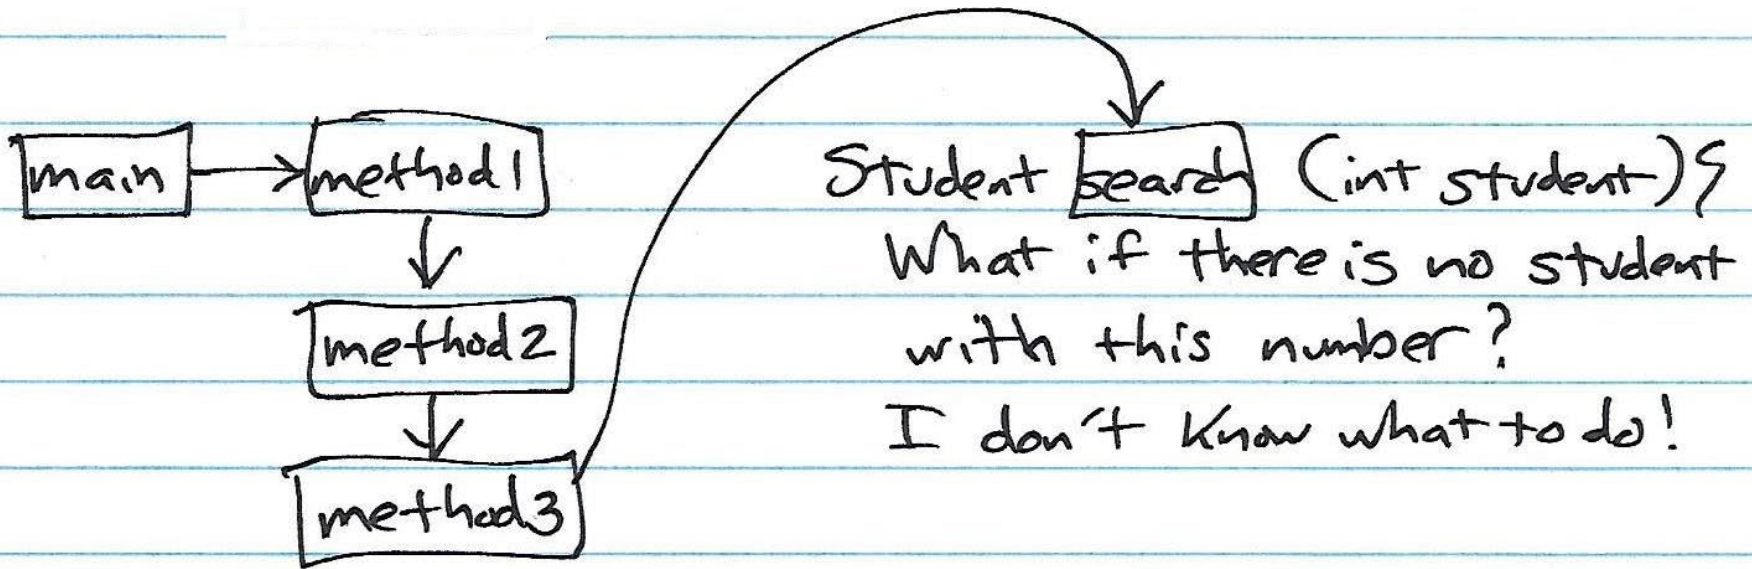 main
method1
method2
method3
Student search (int student) {
What if there is no student
with this number?
I don't know what to do!